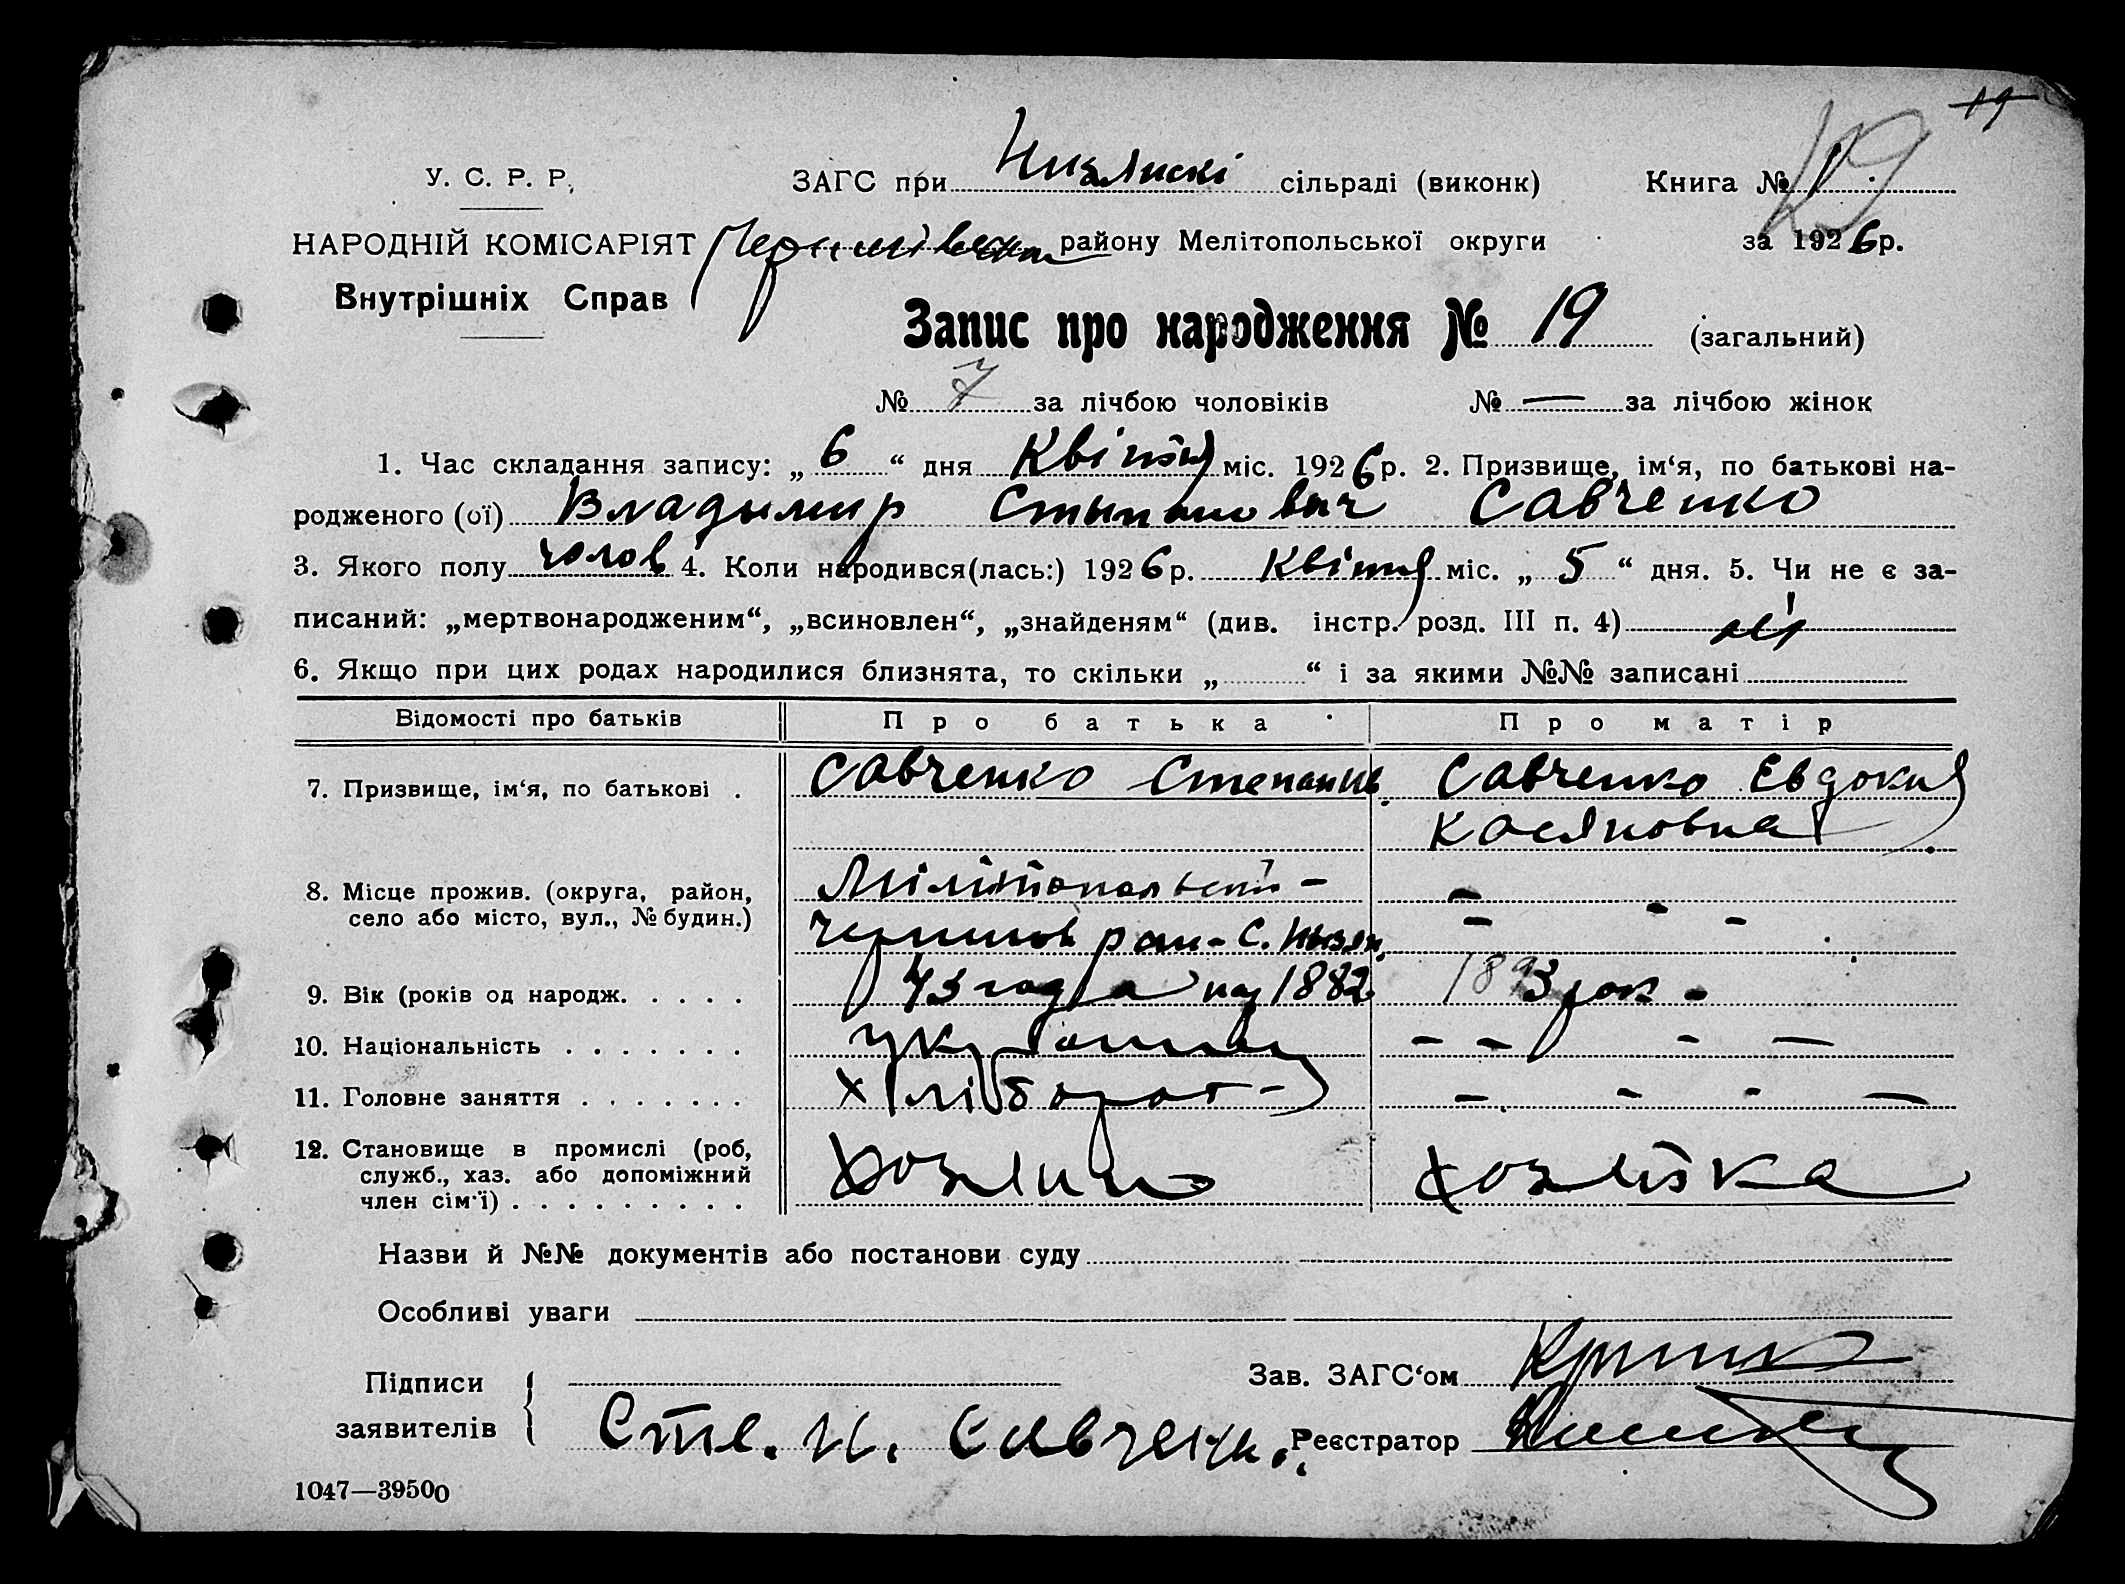 19
У. С. Р. Р. ЗАГС при Низянскі сільраді (виконк) Книга №
НАРОДНІЙ КОМІСАРІЯТ Чернигівском району Мелітопольської округи за 1926 р.
Внутрішніх Справ
Запис про народження № 19 (загальний)
№ 7 за лічбою чоловіків № — за лічбою жінок
1. Час складання запису: „ 6 “ дня Квітня міс. 1926 р. 2. Призвище, ім‘я, по батькові на-
родженого (ої) Владымир Стыпановыч Савченко
3. Якого полу чолов 4. Коли народився(лась:) 1926 р. Квітня міс. „ 5 “ дня. 5. Чи не є за-
писаний: „мертвонародженим“, „всиновлен“, „знайденям“ (див. інстр. розд. III п. 4) ні
6. Якщо при цих родах народилися близнята, то скільки „ “ і за якими №№ записані
Відомості про батьків Про батька Про матір
7. Призвище, ім‘я, по батькові . Савченко Степан Ив. Савченко Евдокия
Касяновна
8. Місце прожив. (округа, район, Мілітопольскій – –
село або місто, вул., № будин.) Чернигов рай - С. Низян. – – –
9. Вік (років од народж. . . . . 43 года 1882 1893 рок -
10. Національність . . . . . . . украинец – – – —
11. Головне заняття . . . . . . . хлібороб - – – – —
12. Становище в промислі (роб, Хозяин Хозяйка
служб., хаз. або допоміжний
член сім‘ї) . . . . . . . . .
Назви й №№ документів або постанови суду
Особливі уваги
Підписи Зав. ЗАГС‘ом
заявителів Сте. И. Савченко. Реєстратор
1047—39500